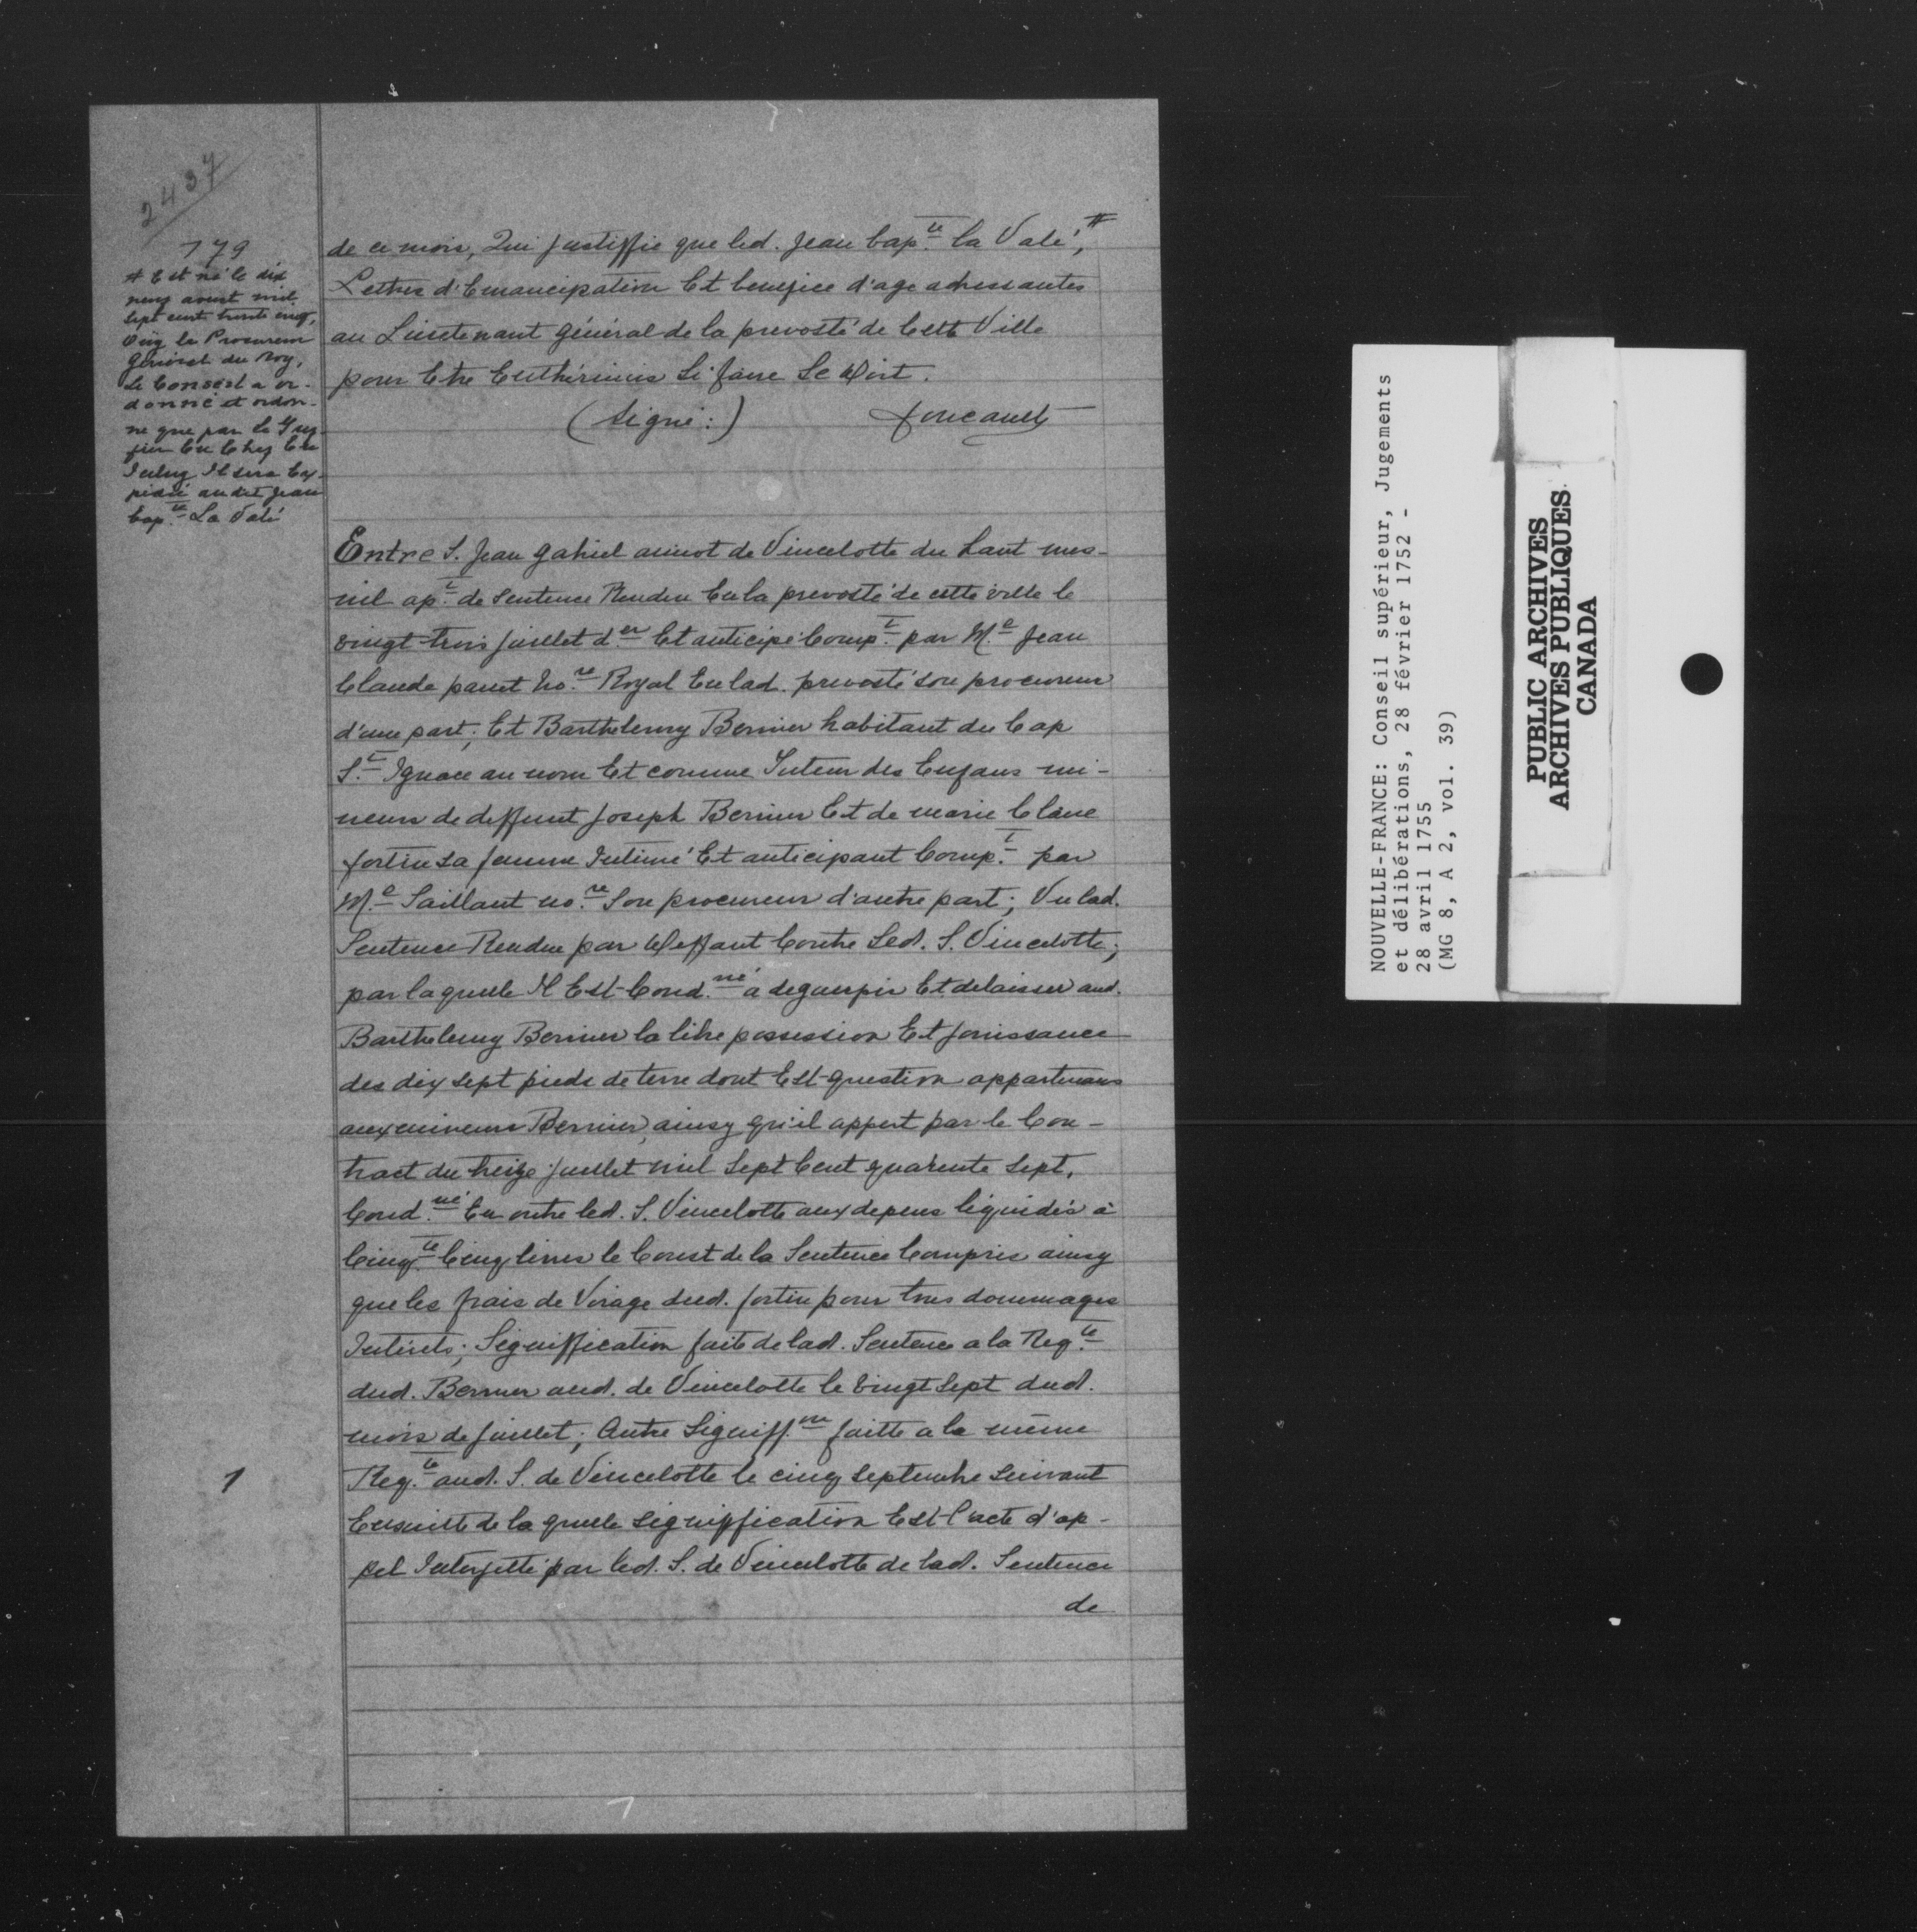 2437
779
# Est né le dix
neuf avust mil
sept cent trente cinq,
Oüy le Procureur
général du Roy,
Le Conseil a or-
donné et ordon-
ne que par le Gref-
fier En Chef
Il sera Ex-
pedié audit Jean
bap.te La Valé
de ce mois, Qui Justiffie que led. Jean bap.te la Valé, #
Lettres d'Emancipation Et benefice d'age adressantes
au Lieutenant général de la prevosté de Cette Ville
pour Etre Enthérinés Si faire Se Doit.
(Signé:) foucault
Entre S. Jean gabriel amiot de Vincelotte du haut mes-
nil ap.t de Sentence Rendue En la prevosté de cette ville le
vingt-trois juillet d.er Et anticipé Comp.t par M.e Jean
Claude panet no.re Royal En lad. prevosté son procureur
d'une part; Et Barthelemy Bernier habitant du Cap
S.t Ignace au nom Et comme Tuteur des Enfans mi-
neurs de deffunt Joseph Bernier Et de marie Claire
fortin sa femme Intimé Et anticipant Comp.t par
M.e Saillant no.re Son procureur d'autre part; Vu lad.
Sentence Rendue par Deffaut Contre Led. S. Vincelotte;
par laquelle Il Est Cond.né a deguerpir Et delaisser aud.
Barthelemy Bernier la libre possession Et Jouissance
des dix sept pieds de terre dont Est question appartenans
aux mineurs Bernier, ainsy qu'il appert par le Con-
tract du treize juillet mil Sept Cent quarente Sept,
Cond.né En outre led. S. Vincelotte aux depens liquidés à
Cinq.te Cinq livres le Coust de la Sentence Compris ainsy
que les frais de Virage dud. fortin pour tous dommages
Interets; Signiffication faite de lad. Sentence a la Req.te
dud. Bernier aud. de Vincelotte le vingt Sept dud.
mois de Juillet; Autre Signiff.on faitte a la même
Req.te aud. S. de Vincelotte le cinq Septembre Suivant
Ensuitte de la quelle Signiffication Est l'acte d'ap-
pel Interjetté par led. S. de Vincelotte de lad. Sentence
de
1
NOUVELLE-FRANCE: Conseil supérieur, Jugements
et délibérations, 28 février 1752 -
28 avril 1755
(MG 8, A 2, vol. 39)
PUBLIC ARCHIVES
ARCHIVES PUBLIQUES
CANADA